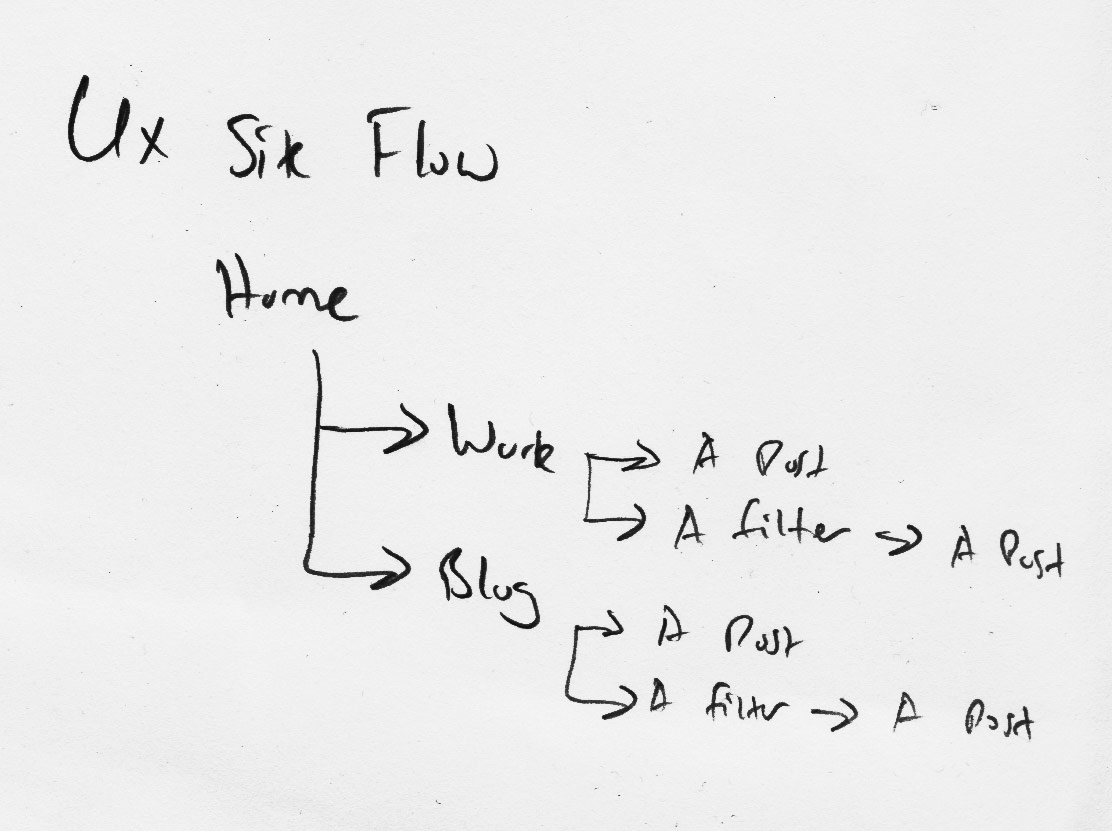 Ux Site Flow
Home
Work
A Post
A filter
A Post
Blog
A Post
A filter
A Post